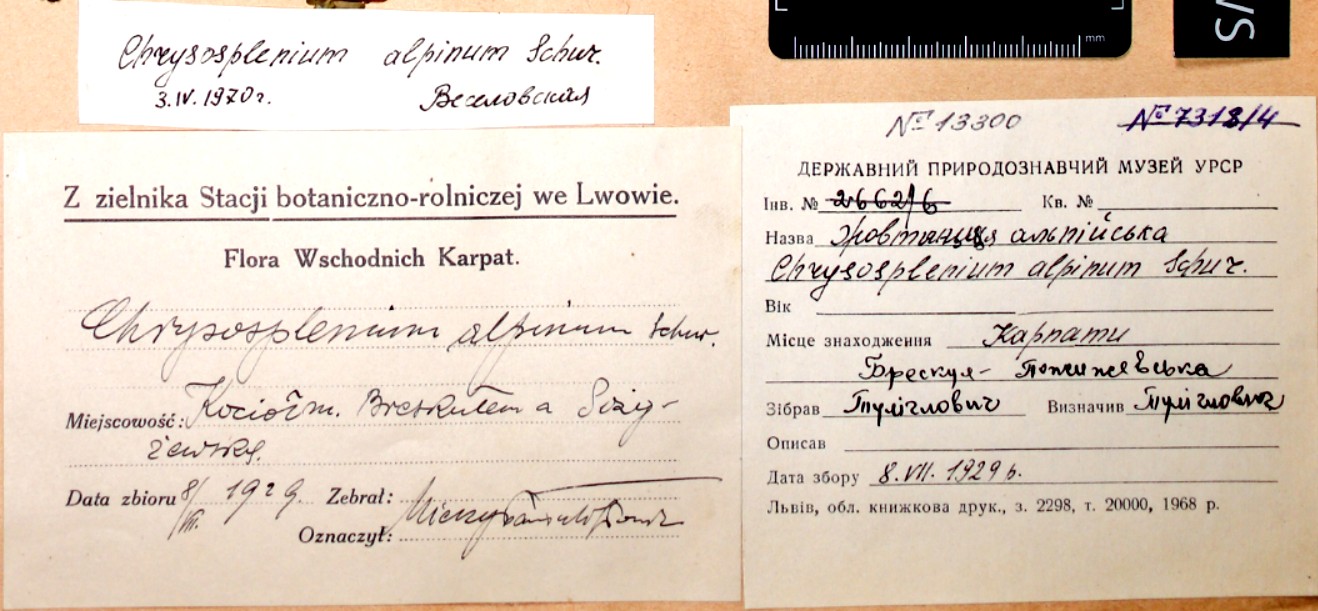 Chrysosplenium alpinum Schur.
3.IV.1970г. Веселовская
mm
Z zielnika Stacji botaniczno-rolniczej we Lwowie.
Flora Wschodnich Karpat.
Chrysosplenium alpinum Schur.
Miejscowość: Kocioł m. Breskułem a
żewską.
Data zbioru 8/VII. 1929. Zebrał:
Oznaczył:
№ 13300 № 7318/4
ДЕРЖАВНИЙ ПРИРОДОЗНАВЧИЙ МУЗЕЙ УРСР
Інв. № 2662/6 Кв. №
Назва Жовтяниця альпійська
Chrysosplenium alpinum Schur.
Вік
Місце знаходження Карпати
Брескул- Пожижевська
Зібрав Туліглович Визначив Туліглович
Описав
Дата збору 8.VII.1929 р.
Львів, обл. книжкова друк., з. 2298, т. 20000, 1968 р.